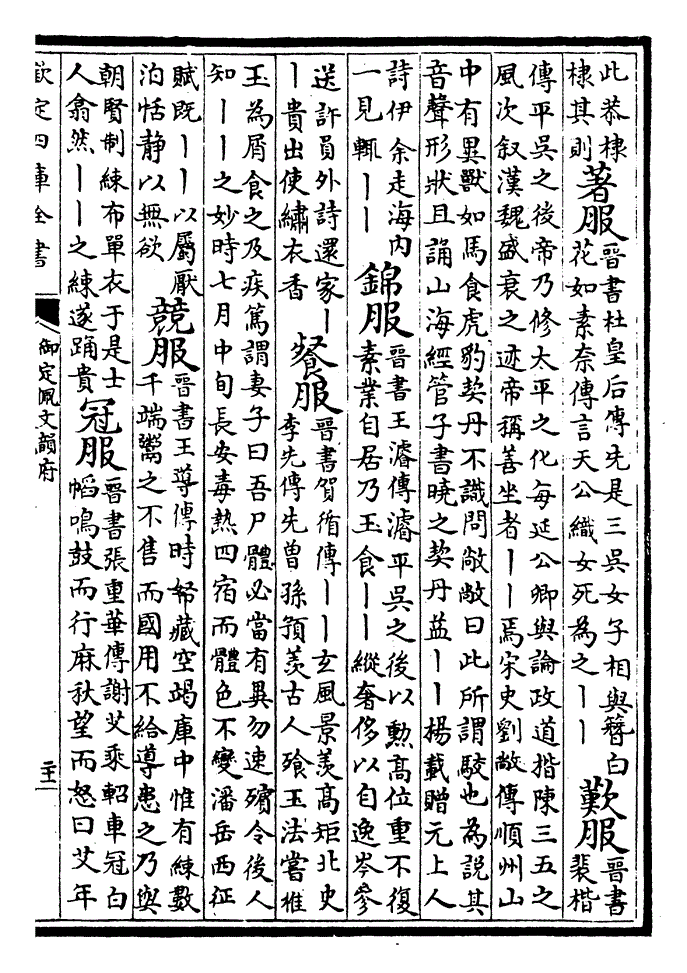 此恭棣
棣其則
著服
晉書杜皇后傳先是三吳女子相與簪白
花如素奈傳言天公織女死為之丨丨
歎服
晉書
裴楷
傳平吳之後帝乃修太平之化每延公卿與論政道楷陳三五之
風次叙漢魏盛衰之迹帝稱善坐者丨丨焉宋史劉敞傳順州山
中有異獸如馬食虎豹契丹不識問敞敞曰此所謂駮也為說其
音聲形狀且誦山海經管子書曉之契丹益丨丨楊載贈元上人
詩伊余走海內
一見輒丨丨
錦服
晉書王濬傳濬平吳之後以勲高位重不復
素業自居乃玉食丨丨縱奢侈以自逸岑參
送許員外詩還家丨
丨貴出使繡衣香
餐服
晉書賀循傳丨丨玄風景羡高矩北史
李先傳先曾孫預羡古人飡玉法嘗椎
玉為屑食之及疾篤謂妻子曰吾尸體必當有異勿速殯令後人
知丨丨之妙時七月中旬長安毒熱四宿而體色不變潘岳西征
賦既丨丨以屬厭
泊恬静以無欲
競服
晉書王導傳時帑藏空竭庫中惟有練數
千端鬻之不售而國用不給導患之乃與
朝賢制練布單衣于是士
人翕然丨丨之練遂踊貴
冠服
晉書張重華傳謝艾乘軺車冠白
幍鳴鼓而行麻秋望而怒曰艾年
欽定四庫全書
御定佩文韻府
二十一